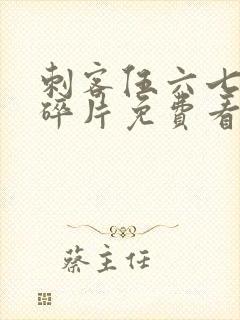 刺客伍六七
碎片免费看
蔡主任